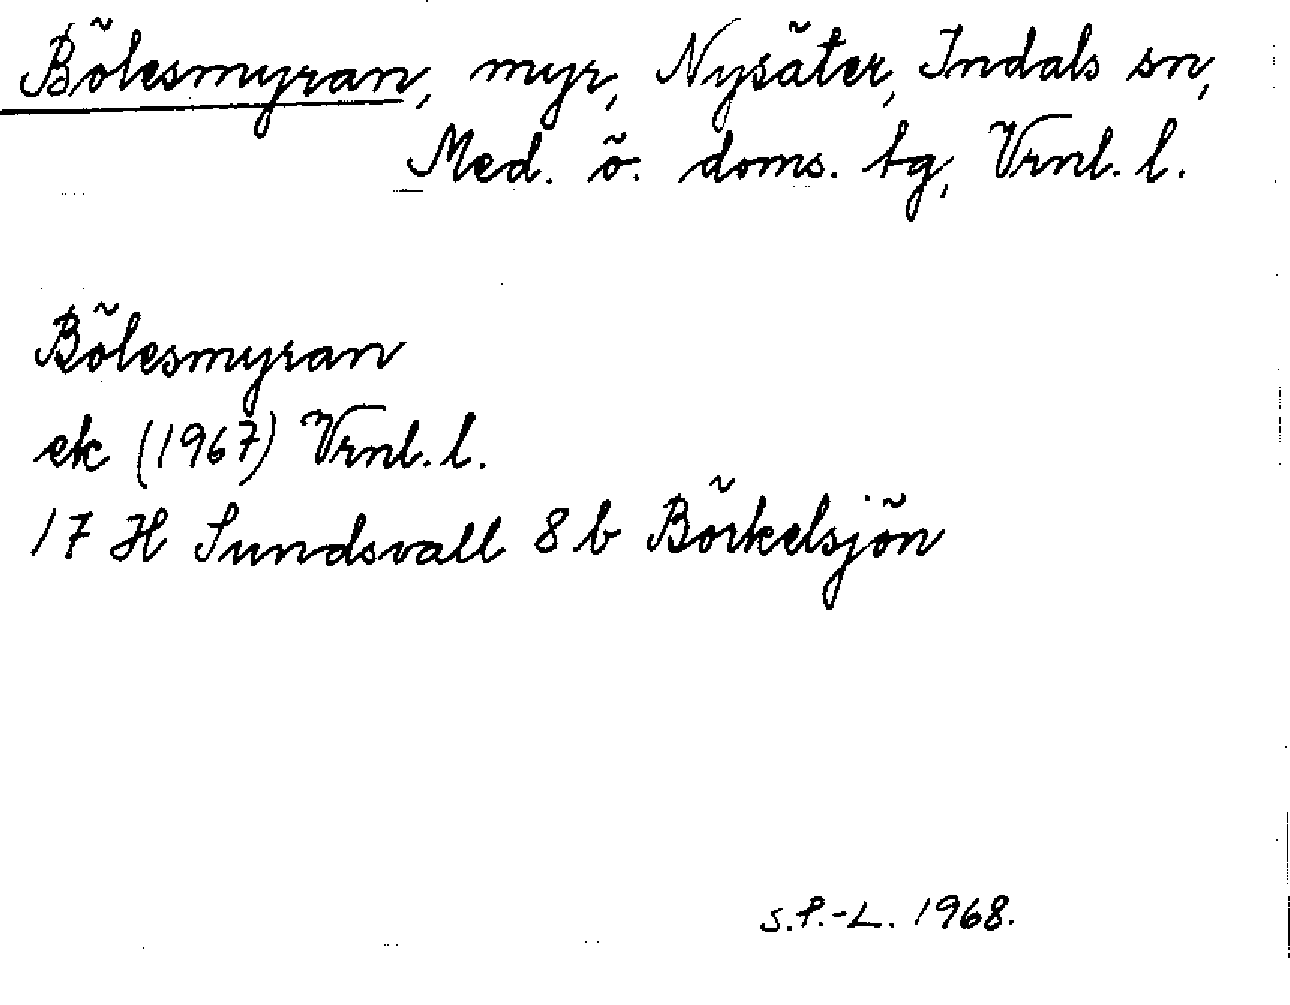 Bölesmyran, myr, Nysäter, Indals sn,
Med. ö. doms. tg, Vrnl. l.
Bölesmyran
ek (1967) Vrnl. l.
17 H Sundsvall 8 b Börkelsjön
S.P.-L. 1968.